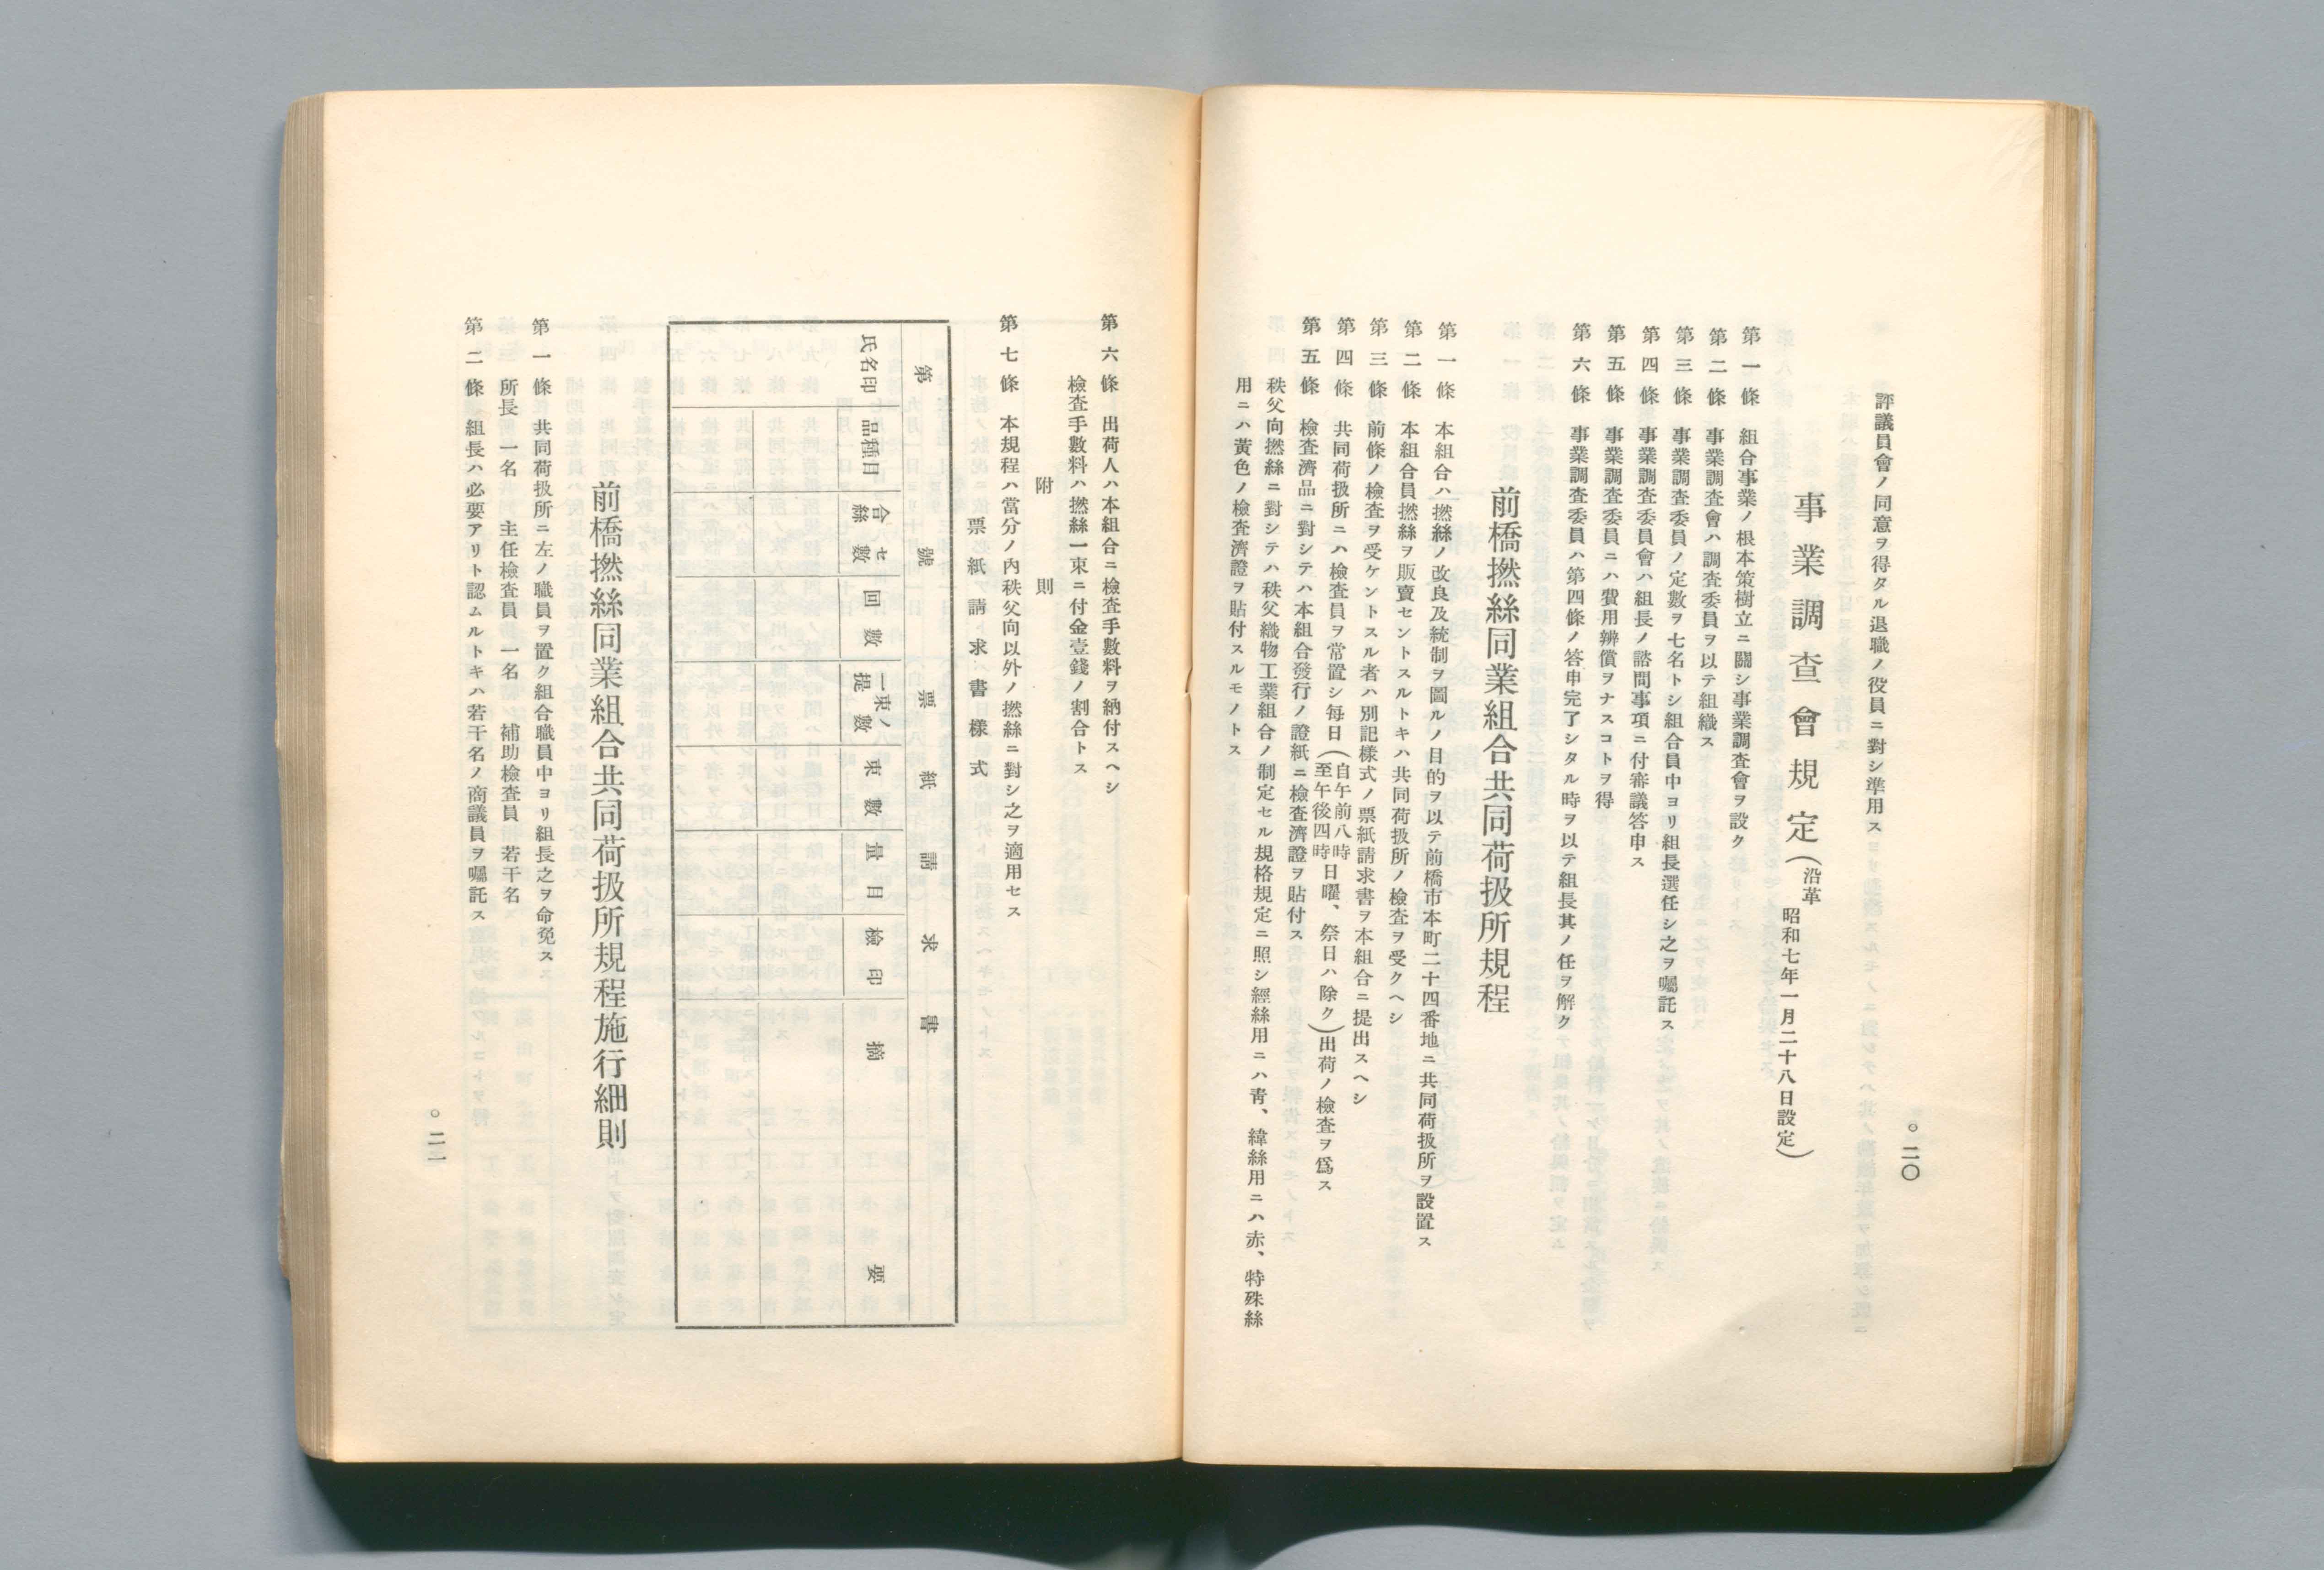 評議員會ノ同意ヲ得タル退職ノ役員ニ對シ準用ス
事業調査會規定(沿革 昭和七年一月二十八日設定)
第一條 組合事業ノ根本策樹立ニ關シ事業調査會ヲ設ク
第二條 事業調査會ハ調査委員ヲ以テ組織ス
第三條 事業調査委員ノ定數ヲ七名トシ組合員中ヨリ組長選任シ之ヲ囑託ス
第四條 事業調査委員會ハ組長ノ諮問事項ニ付審議答申ス
第五條 事業調査委員ニハ費用辨償ヲナスコトヲ得
第六條 事業調査委員ハ第四條ノ答申完了シタル時ヲ以テ組長其ノ任ヲ解ク
前橋撚絲同業組合共同荷扱所規程
第一條 本組合ハ撚絲ノ改良及統制ヲ圖ルノ目的ヲ以テ前橋市本町二十四番地ニ共同荷扱所ヲ設置ス
第二條 本組合員撚絲ヲ販賣セントスルトキハ共同荷扱所ノ檢査ヲ受クヘシ
第三條 前條ノ檢査ヲ受ケントスル者ハ別記樣式ノ票紙請求書ヲ本組合ニ提出スヘシ
第四條 共同荷扱所ニハ檢査員ヲ常置シ每日(自午前八時至午後四時日曜、祭日ハ除ク)出荷ノ檢査ヲ爲ス
第五條 檢査濟品ニ對シテハ本組合發行ノ證紙ニ檢査濟證ヲ貼付ス
秩父向撚絲ニ對シテハ秩父織物工業組合ノ制定セル規格規定ニ照シ經絲用ニハ靑、緯絲用ニハ赤、特殊絲
用ニハ黃色ノ檢査濟證ヲ貼付スルモノトス
○二〇
第六條 出荷人ハ本組合ニ檢査手數料ヲ納付スヘシ
檢査手數料ハ撚絲一束ニ付金壹錢ノ割合トス
附則
第七條 本規程ハ當分ノ内秩父向以外ノ撚絲ニ對シ之ヲ適用セス
票紙請求書樣式
第號票紙請求書
氏名印 品種目 合セ絲數 回數 一束ノ提數 束數 量目 檢印 摘要
前橋撚絲同業組合共同荷扱所規程施行細則
第一條 共同荷扱所ニ左ノ職員ヲ置ク組合職員中ヨリ組長之ヲ命免ス
所長 一名 主任檢査員 一名 補助檢査員 若干名
第二條 組長ハ必要アリト認ムルトキハ若干名ノ商議員ヲ囑託ス
○二一